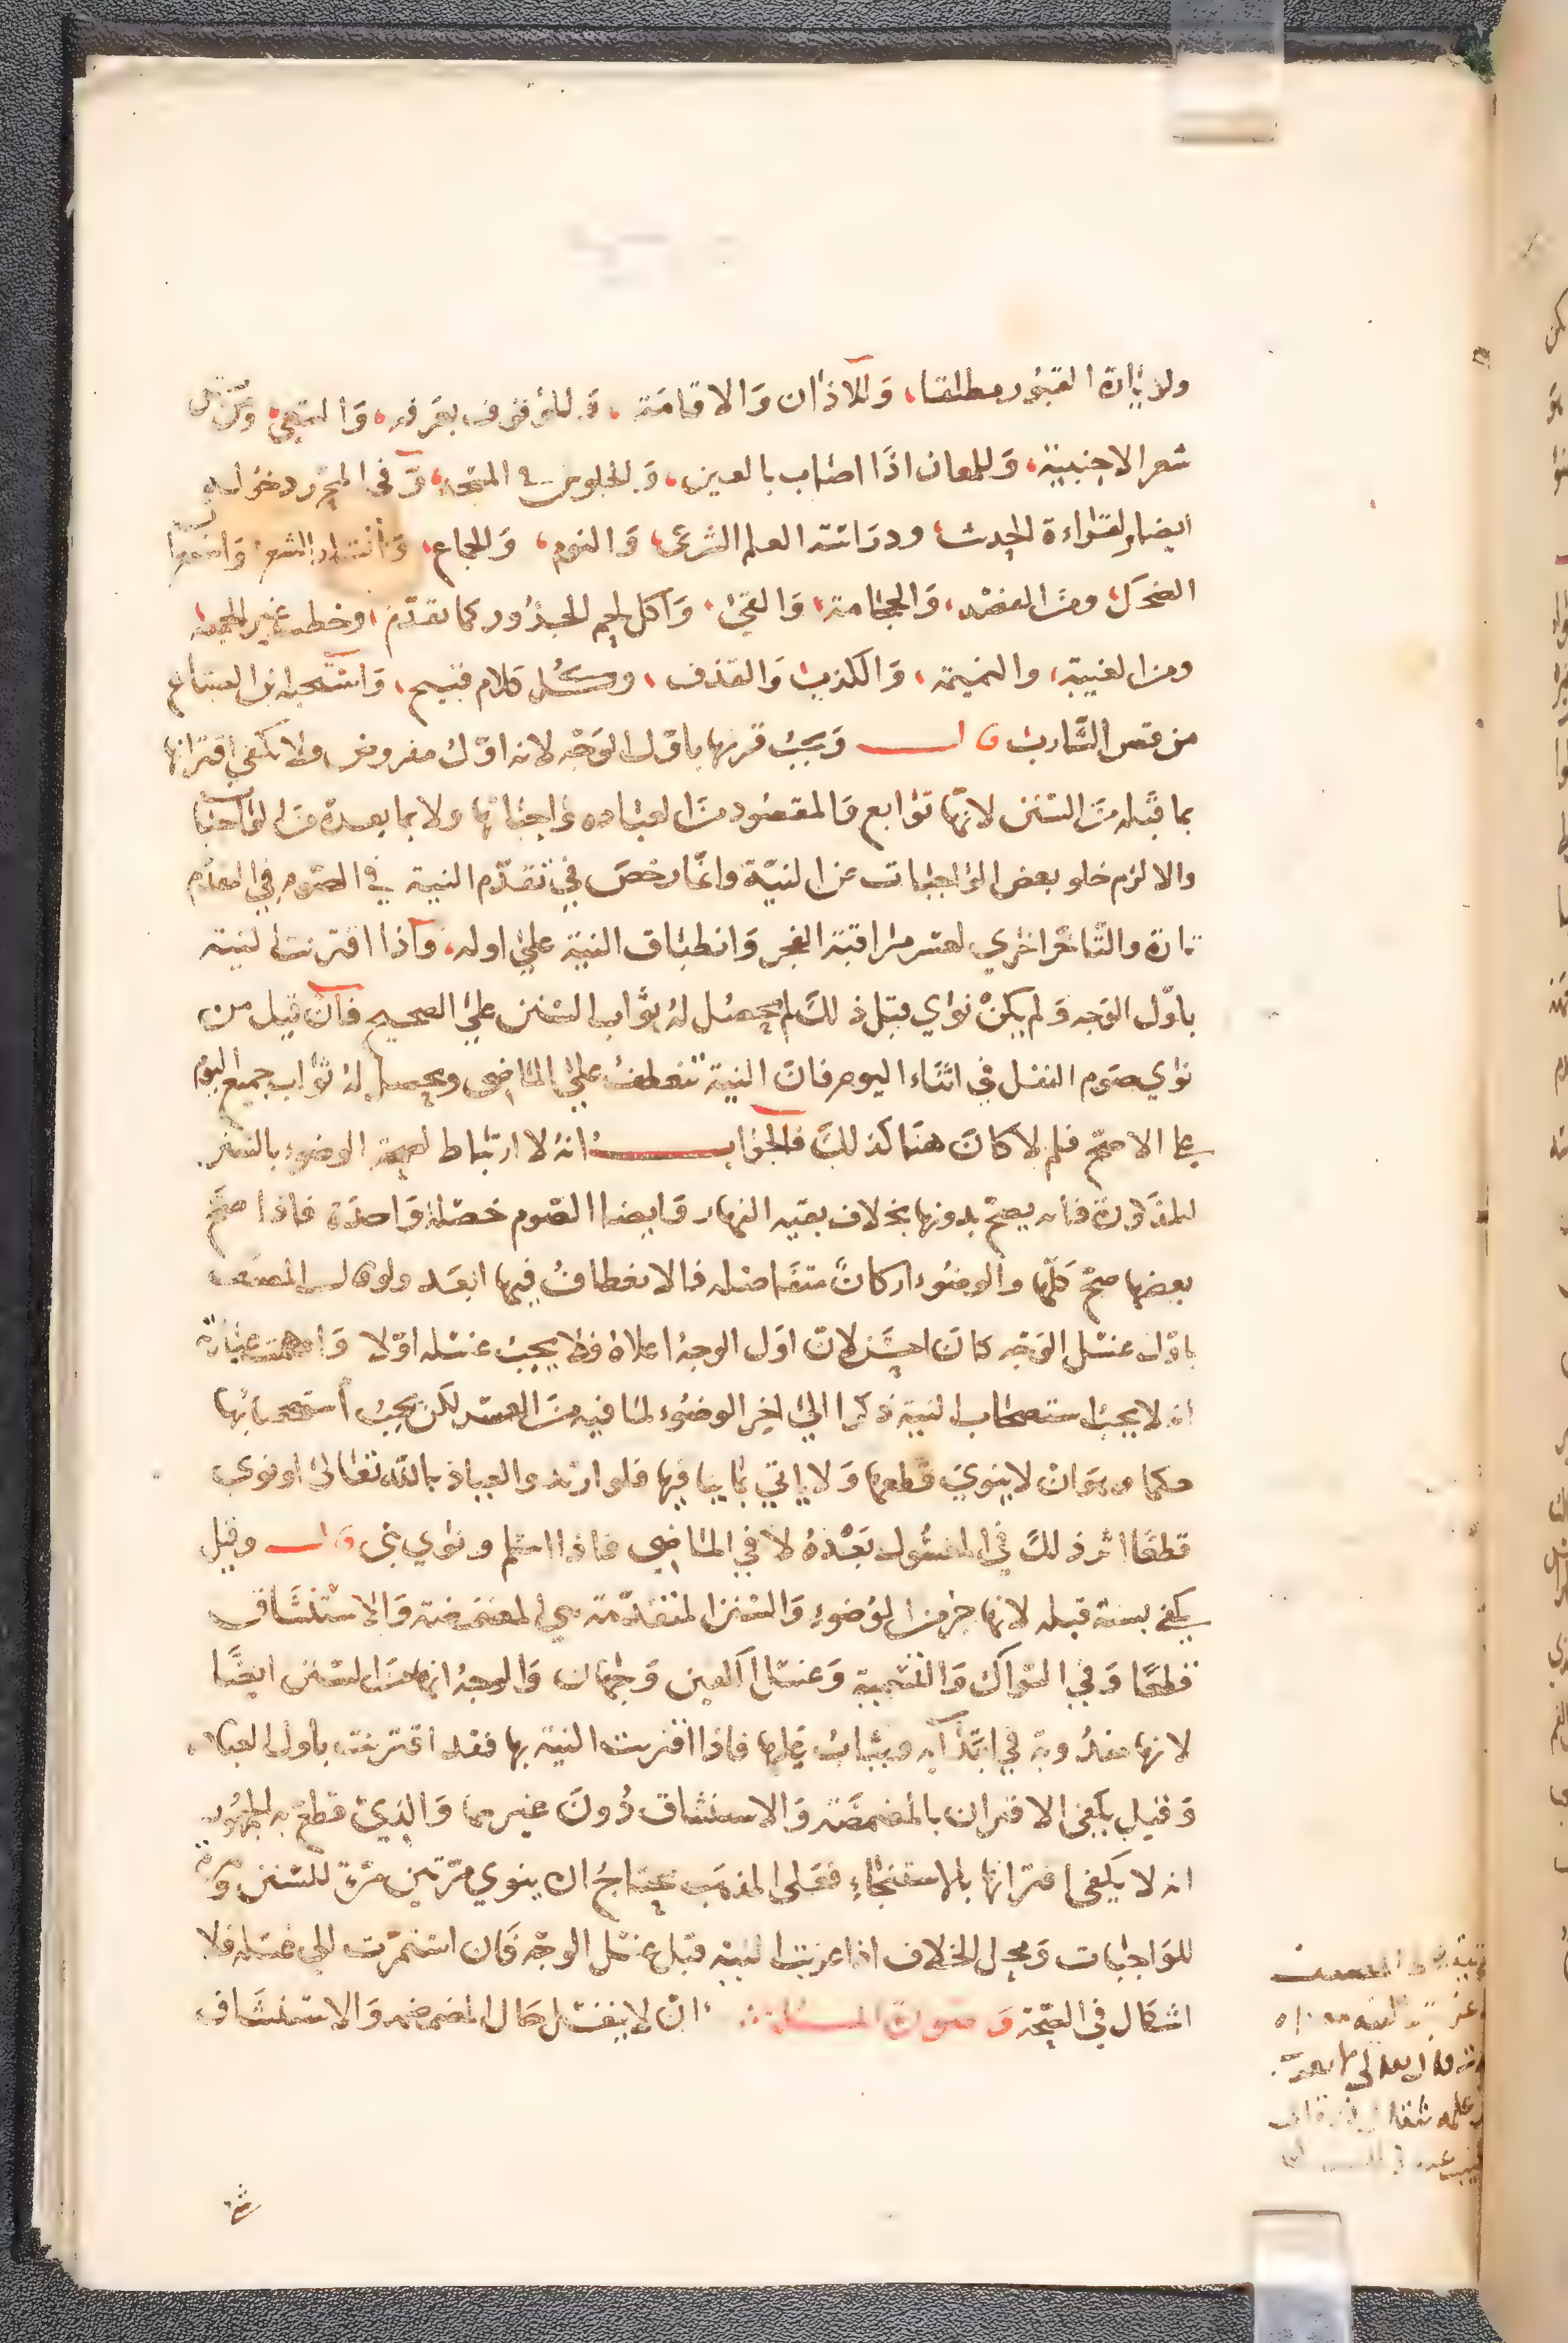 ولزيارة القبور مطلقا، وللاذان والاقامة، وللوقوف بعرفه، والسعي، ومن مس
شعر الاجنبية، وللمعان اذا اصاب بالعين، وللجلوس في المسجد، وفي المحرر دخوله
ايضا ولقراءة الحديث ودراسة العلم الشرعي، والنوم، والجماع، وانشاد الشعر، واستغراب
الضحك، ومن الفصد، والحجامة، والقئ، واكل لحم الجزور كما تقدم، وخطبة غير الجمعه
ومن الغيبة، والنميمة، والكذب، والقذف، وكل كلام قبيح، واستحبه ابن الصباغ
من قص الشارب قال ويجب قرنها باول الوجه لانه اول مفروض فلا يكفي اقترانها
بما قبله من السنن لانها توابع والمقصود من العباده واجباتها ولا بما بعده من الواجبات
والا لزم خلو بعض الواجبات عن النية وانما رخص في تقدم النية في الصوم في المقدم
تارة والتاخر اخري لعسر مراقبة الفجر وانطباق النية علي اوله، واذا اقترنت النية
باول الوجه ولم يكن نوي قبل ذلك لم يحصل له ثواب السنن علي الصحيح فان قيل من
نوي صوم النفل في اثناء اليوم فان النية تنعطف علي الماضي ويحصل له ثواب جميع اليوم
علي الاصح فلم لا كان هنا كذلك فالجواب انه لا ارتباط لصحة الوضوء بالسنن
المذكورة فانه يصح بدونها بخلاف بقيه النهار وايضا الصوم خصلة واحدة فاذا صح
بعضها صح كلها والوضوء اركان متفاصله فالانعطاف فيها ابعد ولو قال المصنف
باول غسل الوجه كان احسن لان اول الوجه اعلاه فلا يجب غسله اولا وافهمت عبارته
انه لا يجب استصحاب النية ذكرا الي اخر الوضوء لما فيه من العسر لكن يجب استصحابها
حكما وهو ان لا ينوي قطعها ولا ياتي بما ينافيها فلو ارتد والعياذ بالله تعالى او نوى
قطعا اثر ذلك في المغسول بعده لا في الماضي فاذا اسلم ونوي بنى قال وقيل
يكفي بسنة قبله لانها جزء من الوضوء والسنن المتقدمة هي المضمضة والاستنشاق
قطعا وفي السواك والتسمية وغسل الكفين وجهان والوجه انها من السنن ايضا
لانها مندوبة في ابتدائه ويثاب عليها فاذا اقترنت النية بها فقد اقترنت باول العبادة
وقيل يكفي الاقتران بالمضمضه والاستنشاق دون غيرهما والذي قطع به الجمهور
انه لا يكفي اقترانها بالاستنجاء فعلى المذهب يحتاج ان ينوي مرتين مرة للسنن ومرة
للواجبات ومحل الخلاف اذا عزبت النية قبل غسل الوجه فان استمرت الى غسله فلا
اشكال في الصحة وصورة المسئلة ان لا ينغسل حال المضمضه والاستنشاق